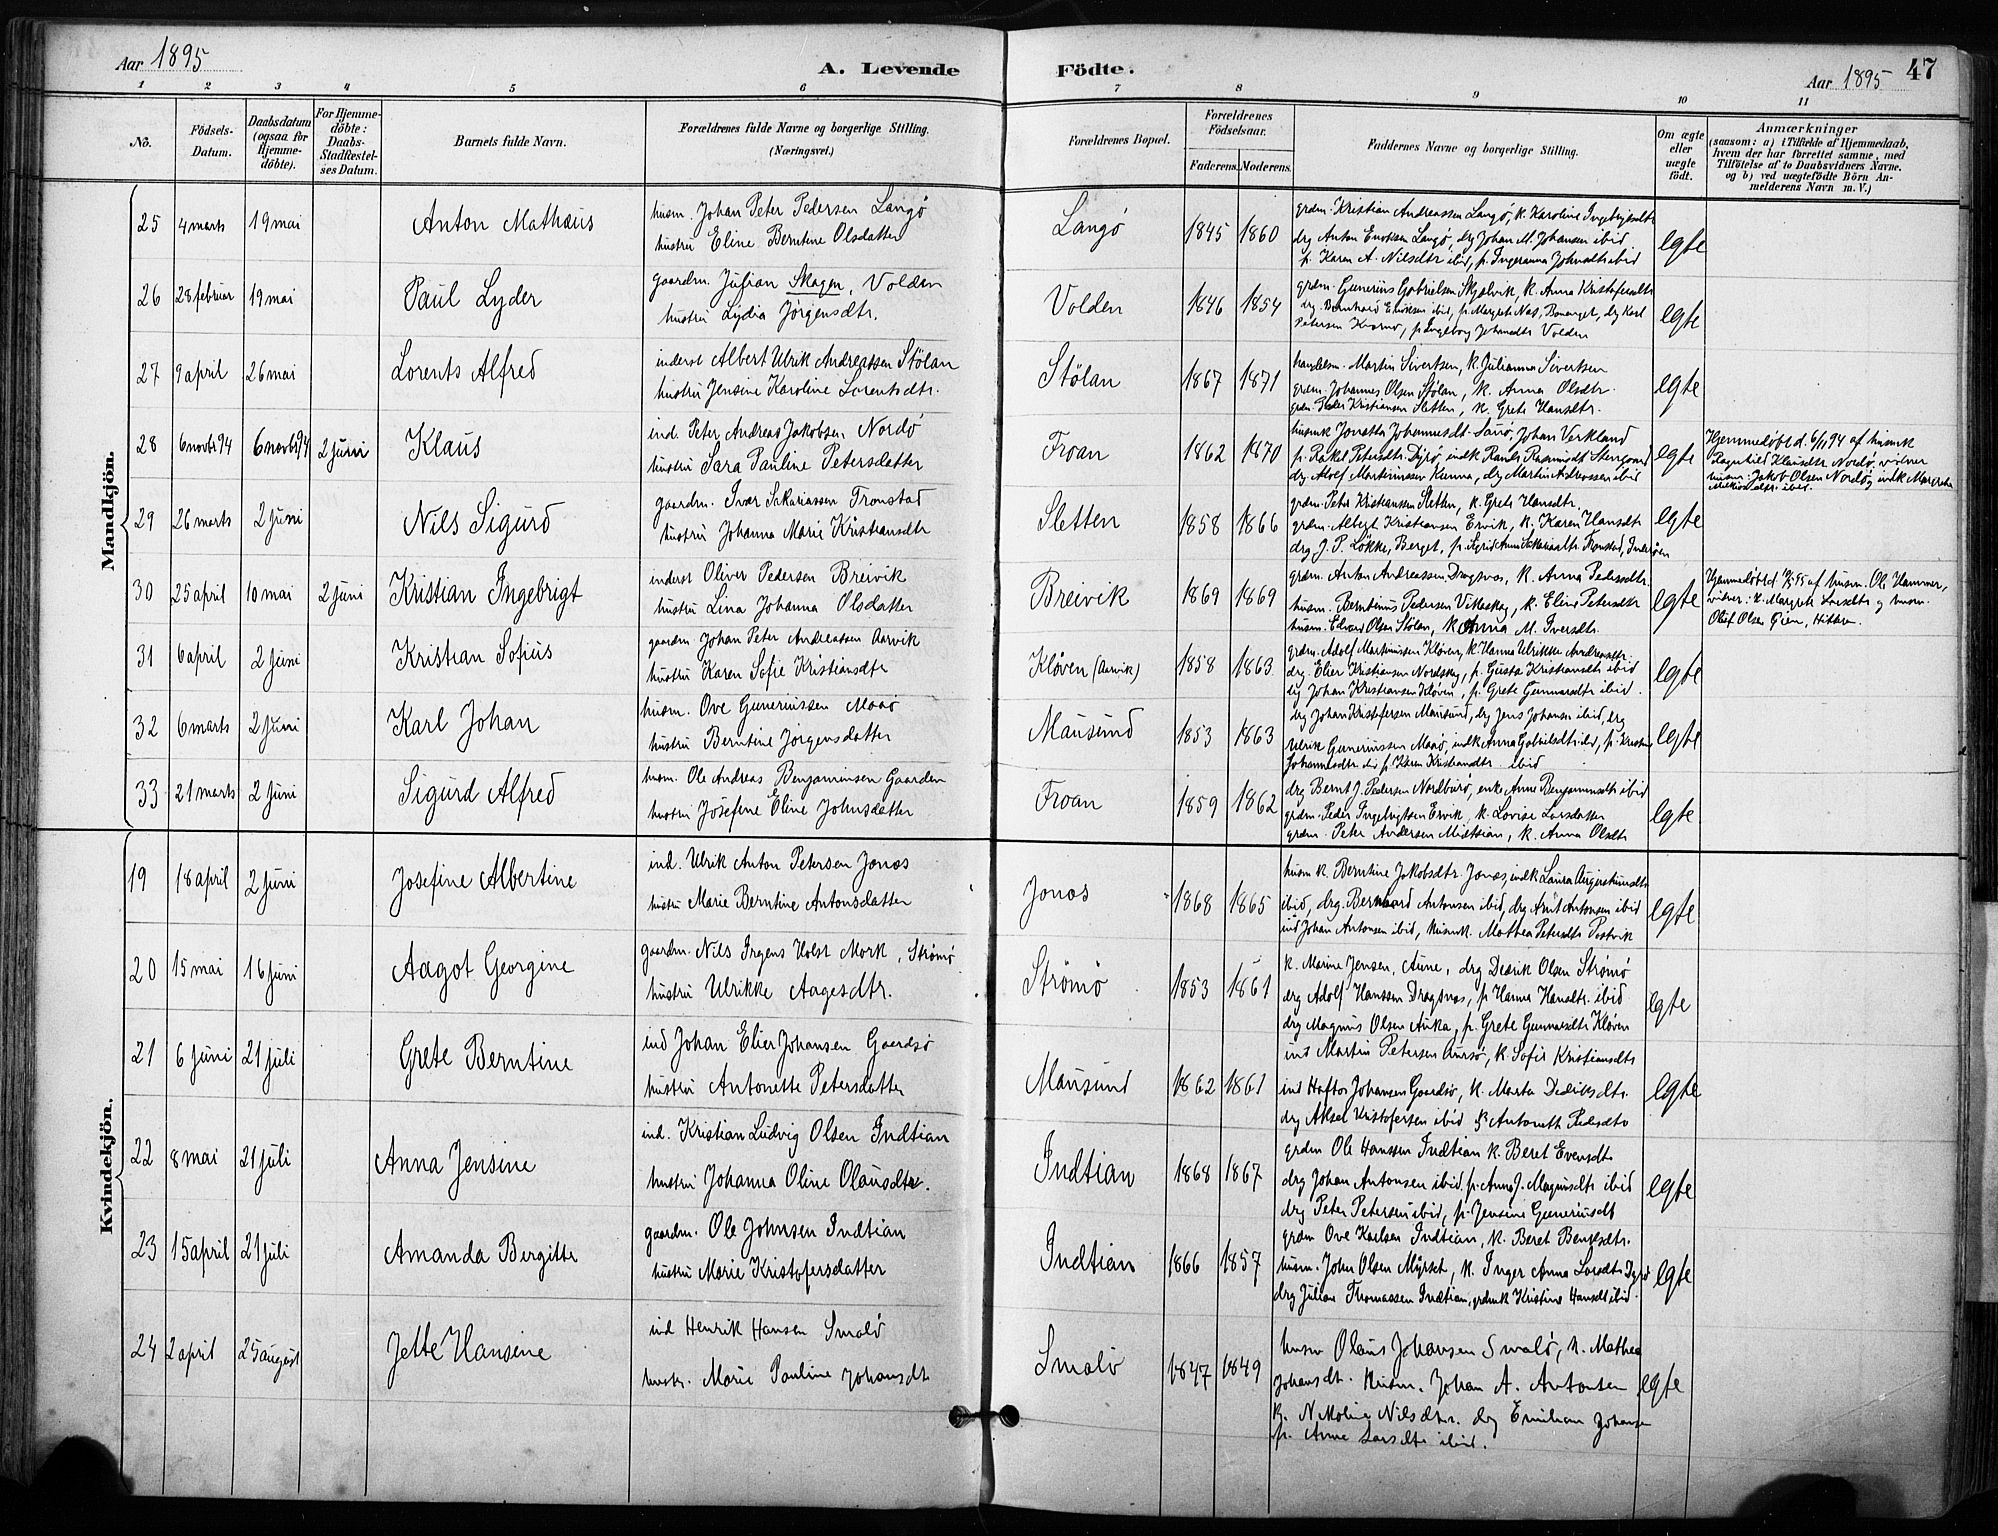 Aar 1895
A. Levende Födte.
Aar 1895 47
1 2 3 4 5 6 7 8 9 10 11
No.
Födsels-Datum.
Daabsdatum (ogsaa for Hjemme-döbte).
For Hjemme-döbte: Daabs-Stadfæstel-ses Datum.
Barnets fulde Navn.
Forældrenes fulde Navne og borgerlige Stilling. (Næringsvei.)
Forældrenes Bopæl.
Forældrenes Födselsaar.
Faderens. Moderens.
Faddernes Navne og borgerlige Stilling.
Om ægte eller uægte födt.
Anmærkninger
(saasom: a) i Tilfælde af Hjemmedaab, hvem der har forrettet samme, med Tilföielse af to Daabsvidners Navne. og b) ved uægtefödte Börn An-melderens Navn m. V.)
Mandkjön.
25 4 marts 19 mai Anton Mathæus
husm. Johan Peter Pedersen Langö
hustru Eline Berntine Olsdatter
Langö 1845 1860
grdm. Kristian Andreassen Langö, k. Karoline
drg Anton Langö, drg Johan M. Johansen ibid
p. Karen A. Nilsdtr ibid, p. Ingeranna Johnsdtr ibid
egte
26 28 februar 19 mai Paul Lyder
gaardm. Julian Skagen, Volden
hustru Lydia Jörgensdtr.
Volden 1846 1854
grdm. Gunerius Gabrielsen Skjælvik, k. Anna Kristofersdtr
drg Bernhard ibid, p. Margrete Næs, drg Karl
Petersen p. Ingeborg Johansdtr Volden
egte
27 9 april 26 mai Lorents Alfred
inderst Albert Ulrik Andreassen Stölan
hustru Jensine Karoline Lorentsdtr.
Stölan 1867 1871
handelsm. Martin Sivertsen, k. Julianna Sivertsen
grdm. Johannes Olsen Stölan, k. Anna Olsdtr.
grdm. Peder Kristiansen Sletten, k. Grete Hansdtr.
egte
28 6 novbr 94 6 novbr 94 2 juni Klaus
ind. Peter Andreas Jakobsen Nordö
hustru Sara Pauline Petersdatter
Froan 1862 1870
husmk Johannesdtr Johan Værkland
p. Rakel Petersdtr Dyrö, indk Randi Rasmusdt
drg Adolf Martinussen Kunna, drg Martin Andreassen ibid
egte
Hjemmedöbt d. 6/11 94 af husmk
Ragnhild Klausdtr Nordö, vidner
husm. Jakob Olsen Nordö og indk Margrete
ibid.
29 26 marts 2 juni Nils Sigurd
gaardm. Ivar Sakariassen Tronstad
hustru Johanna Marie Kristiansdtr
Sletten 1858 1866
grdm. Peter Kristiansen Sletten, k. Grete Hansdtr.
grdm. Albert Kristiansen Ervik, k. Karen Hansdtr
drg J. P. Lökke, Berget, p. Sigrid Anna Sakariasdtr Tronstad,
egte
30 25 april 10 mai 2 juni Kristian Ingebrigt
inderst Oliver Pedersen Breivik
hustru Lina Johanna Olsdatter
Breivik 1869 1869
grdm. Anton Andreassen Dragsnæs, k. Anna Pedersdtr.
husm. Berntinus Pedersen k. Eline Petersdtr
husm. Edvard Olsen Stölan, k Anna M. Iversdtr.
egte
Hjemmedöbt d 10/5 95 af husm. Ole Hammer,
vidner: k. Margrete Larsdtr og husm.
Oluf Olsen Hittra.
31 6 april 2 juni Kristian Sofius
gaardm. Johan Peter Andreassen Aarvik
hustru Karen Sofie Kristiansdtr
Klöven (Aarvik) 1858 1863
grdm. Adolf Martinussen Klöven, k Hanna Ulrikke Andreasdtr.
drg. Elier Kristiansen Nordskag, p. Gusta Kristiansdtr ibid
drg Johan Kristiansen Klöven, p. Grete Gunnarsdtr ibid.
egte
32 6 marts 2 juni Karl Johan
husm. Ove Guneriussen Maaö
hustru Berntine Jörgensdatter
Mausund 1853 1863
drg Johan Kristofersen Mausund, drg Jens Johansen ibid, drg
Ulrik Guneriussen Maaö, indk Anna Gabrielsdtr ibid, p. Kristine
Johannesdtr ibid p. Karen Kristiansdtr ibid
egte
33 21 marts 2 juni Sigurd Alfred
husm. Ole Andreas Benjaminsen Gaarden
hustru Josefine Eline Johnsdatter
Froan 1859 1862
drg Bernt J. Pedersen Nordburö, enke Anne Benjaminsdtr ibid
grdm. Peder Ingebrigtsen Ervik, k. Lovise Larsdatter
grdm. Peter Andersen Midtsian, k. Anna Olsdtr
egte
Kvindekjön.
19 18 april 2 juni Josefine Albertine
ind. Ulrik Anton Petersen Jönos
hustru Marie Berntine Antonsdatter
Jönos 1868 1865
husm k. Berntine Jakobsdtr Jönos, indk Laura Augustinusdtr
ibid, drg. Bernhard Antonsen ibid, drg Arnt Antonsen ibid
ind Johan Antonsen ibid, husmk. Mathea Petersdtr
egte
20 15 mai 16 juni Aagot Georgine
gaardm. Nils Irgens Holst Mork, Strömö
hustru Ulrikke Aagesdtr.
Strömö 1853 1861
k. Marine Jensen, Aune, drg Dedrik Olsen Strömö
drg Adolf Hanssen Dragsnæs, p. Hanna Hansdtr. ibid
drg Magnus Olsen Auka, p. Grete Gunnarsdtr Klöven
egte
21 6 juni 21 juli Grete Berntine
ind Johan Elier Johansen Gaardsö
hustru Antonette Petersdatter
Mausund 1862 1861
ind Martin Petersen Aursö, k. Sofie Kristiansdtr
ind Haftor Johansen Gaardsö, k. Marta Dedriksdtr.
drg Aksel Kristofersen ibid p. Antoneth Pedersdtr
egte
22 8 mai 21 juli Anna Jensine
ind. Kristian Ludvig Olsen Indtian
hustru Johanna Oline Olausdtr.
Indtian 1868 1867
grdm Ole Hanssen Indtian k. Beret Evensdtr
drg Johan Antonsen ibid, p. Anna J. Magnusdtr ibid
drg Peter Petersen ibid, p. Jensine Guneriusdt
egte
23 15 april 21 juli Amanda Bergitte
gaardm. Ole Johnsen Indtian
hustru Marie Kristofersdatter
Indtian 1866 1857
grdm Ove Karlsen Indtian, k. Beret Bentsdtr.
husm. John Olsen Myrset, k. Inger Anna Larsdtr Dyrö
drg Julian Thomassen Indtian, grdmk Kristine Hansdt ibid.
egte
24 2 april 25 august Jette Hansine
ind Henrik Hansen Smalö
hustr. Marie Pauline Johansdt
Smalö 1847 1849
husm Olaus Johansen Smalö, k. Mathea
Johansdt. Husm. Johan A. Antonsen
k. Nilsdtr. drg Emilian Johansen
p. Anne Larsdtr ibid.
egte